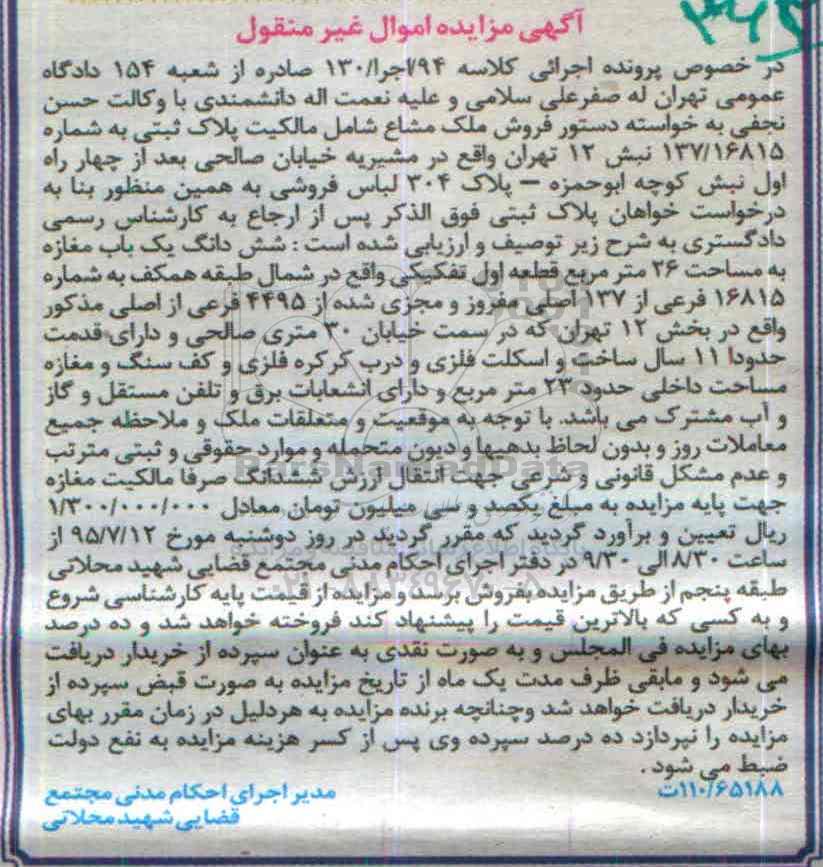 آگهی مزایده اموال غیر منقول
در خصوص پرونده اجرائی کلاسه ۹۴/اجرا/۱۳۰ صادره از شعبه ۱۵۴ دادگاه
عمومی تهران له صفرعلی سلامی و علیه نعمت اله دانشمندی با وکالت حسن
نجفی به خواسته دستور فروش ملک مشاع شامل مالکیت پلاک ثبتی به شماره
۱۳۷/۱۶۸۱۵ نبش ۱۲ تهران واقع در مشیریه خیابان صالحی بعد از چهار راه
اول نبش کوچه ابوحمزه – پلاک ۳۰۴ لباس فروشی به همین منظور بنا به
درخواست خواهان پلاک ثبتی فوق الذکر پس از ارجاع به کارشناس رسمی
دادگستری به شرح زیر توصیف و ارزیابی شده است : شش دانگ یک باب مغازه
به مساحت ۲۶ متر مربع قطعه اول تفکیکی واقع در شمال طبقه همکف به شماره
۱۶۸۱۵ فرعی از ۱۳۷ اصلی مفروز و مجزی شده از ۴۴۹۵ فرعی از اصلی مذکور
واقع در بخش ۱۲ تهران که در سمت خیابان ۳۰ متری صالحی و دارای قدمت
حدودا ۱۱ سال ساخت و اسکلت فلزی و درب کرکره فلزی و کف سنگ و مغازه
مساحت داخلی حدود ۲۳ متر مربع و دارای انشعابات برق و تلفن مستقل و گاز
و آب مشترک می باشد. با توجه به موقعیت و متعلقات ملک و ملاحظه جمیع
معاملات روز و بدون لحاظ بدهیها و دیون متحمله و موارد حقوقی و ثبتی مترتب
و عدم مشکل قانونی و شرعی جهت انتقال ارزش ششدانگ صرفا مالکیت مغازه
جهت پایه مزایده به مبلغ یکصد و سی میلیون تومان معادل ۱/۳۰۰/۰۰۰/۰۰۰
ریال تعیین و برآورد گردید که مقرر گردید در روز دوشنبه مورخ ۹۵/۷/۱۲ از
ساعت ۸/۳۰ الی ۹/۳۰ در دفتر اجرای احکام مدنی مجتمع قضایی شهید محلاتی
طبقه پنجم از طریق مزایده بفروش برسد و مزایده از قیمت پایه کارشناسی شروع
و به کسی که بالاترین قیمت را پیشنهاد کند فروخته خواهد شد و ده درصد
بهای مزایده فی المجلس و به صورت نقدی به عنوان سپرده از خریدار دریافت
می شود و مابقی ظرف مدت یک ماه از تاریخ مزایده به صورت قبض سپرده از
خریدار دریافت خواهد شد وچنانچه برنده مزایده به هردلیل در زمان مقرر بهای
مزایده را نپردازد ده درصد سپرده وی پس از کسر هزینه مزایده به نفع دولت
ضبط می شود .
۱۱۰/۶۵۱۸۸ت
مدیر اجرای احکام مدنی مجتمع
قضایی شهید محلاتی
ParsNamadData